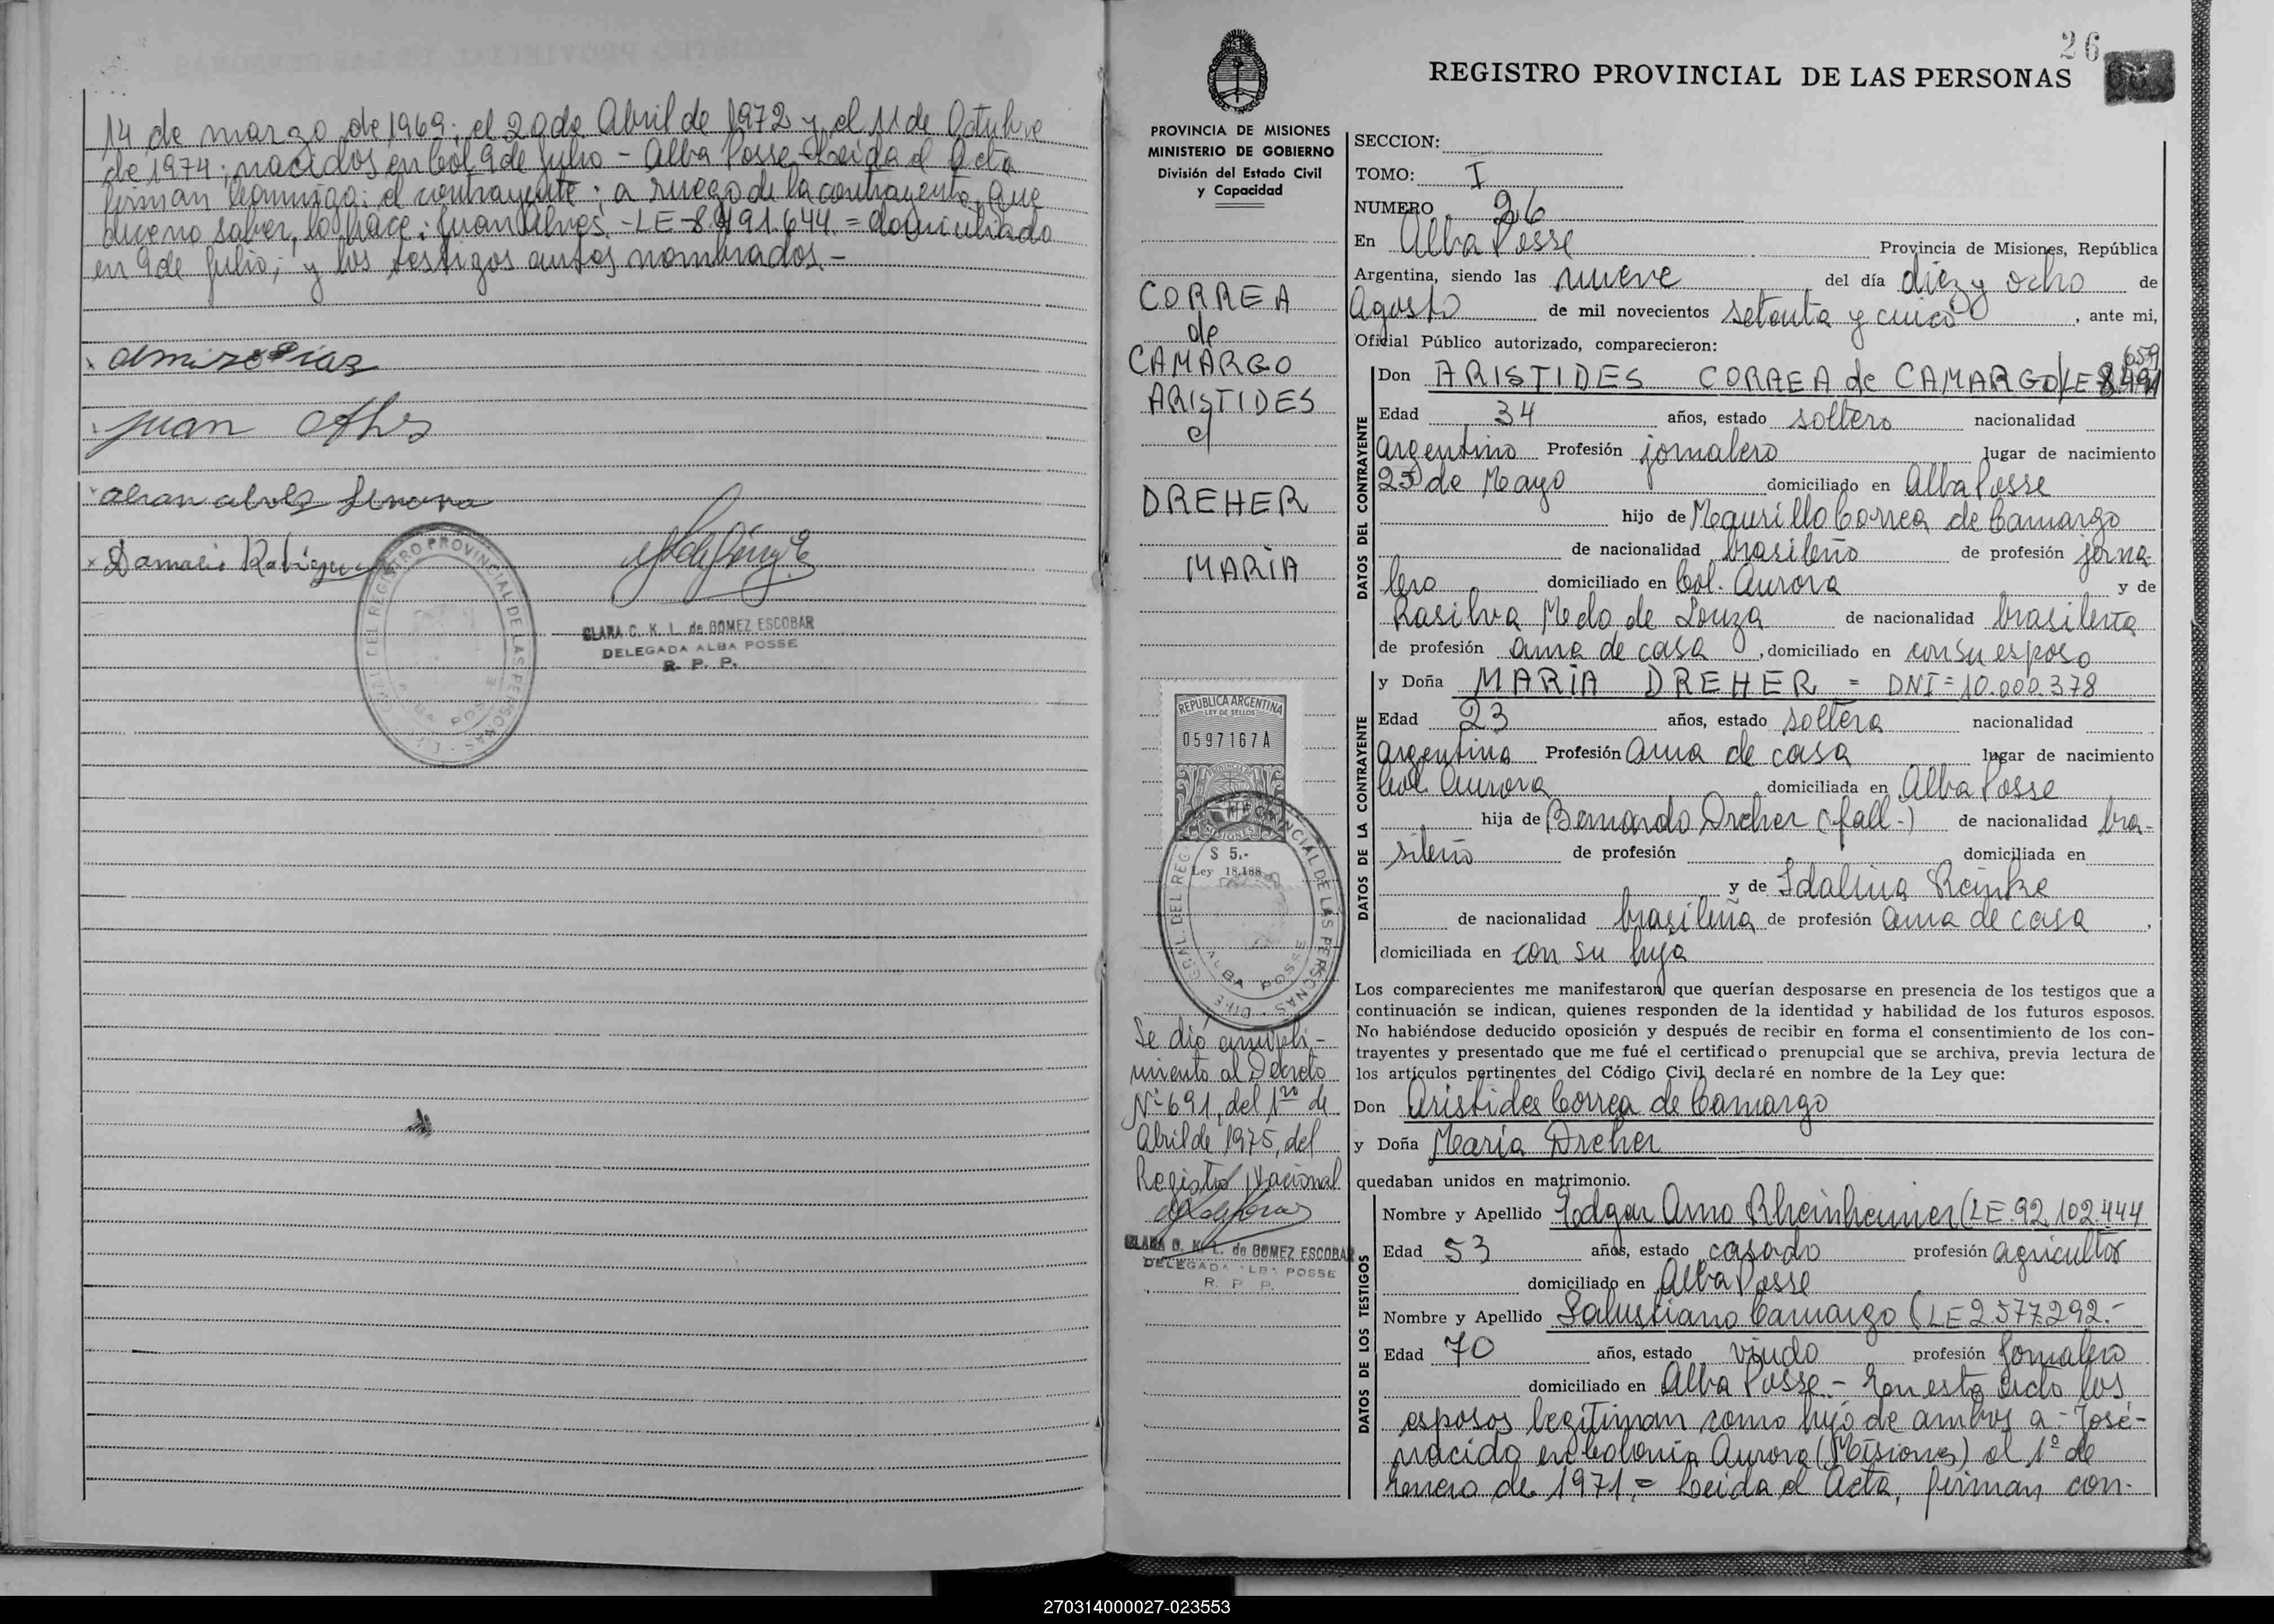 14 de marzo de 1969; el 20 de Abril de 1972 y el 11 de Octubre
de 1974; nacidos en Col. 9 de Julio - Alba Posse. Leida el Acta
firman conmigo: el contrayente; a ruego de la contrayente, que
dice no saber, lo hace: Juan Alves - LE-8.491.644 = domiciliado
en 9 de Julio; y los testigos antes nombrados.-
Juan
Damacio
CLARA C. K. L. de GOMEZ ESCOBAR
DELEGADA ALBA POSSE
R. P. P.
26
REGISTRO PROVINCIAL DE LAS PERSONAS
PROVINCIA DE MISIONES
MINISTERIO DE GOBIERNO
División del Estado Civil
y Capacidad
CORREA
de
CAMARGO
ARISTIDES
c/
DREHER
MARIA
REPUBLICA ARGENTINA
LEY DE SELLOS
0597167A
MISIONES
$ 5.-
Ley 18.188
Se dió cumpli-
miento al Decreto
Nº 691, del 1ro de
Abril de 1975, del
Registro Nacional
CLARA C. K. L. de GOMEZ ESCOBAR
DELEGADA ALBA POSSE
R. P. P.
SECCION:
TOMO: I
NUMERO 26
En Alba Posse Provincia de Misiones, República
Argentina, siendo las nueve del día diez y ocho de
Agosto de mil novecientos setenta y cinco, ante mi,
Oficial Público autorizado, comparecieron:
DATOS DEL CONTRAYENTE
Don ARISTIDES CORREA de CAMARGO/LE 8.491 659
Edad 34 años, estado soltero nacionalidad
argentino Profesión jornalero lugar de nacimiento
25 de Mayo domiciliado en Alba Posse
hijo de Maurillo Correa de Camargo
de nacionalidad brasileño de profesión jorna-
lero domiciliado en Col. Aurora y de
Rasilva Melo de Souza de nacionalidad brasileña
de profesión ama de casa, domiciliado en con su esposo
DATOS DE LA CONTRAYENTE
y Doña MARIA DREHER = DNI = 10.000.378
Edad 23 años, estado soltera nacionalidad
argentina Profesión ama de casa lugar de nacimiento
Col. Aurora domiciliada en Alba Posse
hija de Bernardo Dreher (fall.) de nacionalidad bra-
sileño de profesión domiciliada en
y de Idalina Reinke
de nacionalidad brasileña de profesión ama de casa,
domiciliada en con su hija
Los comparecientes me manifestaron que querían desposarse en presencia de los testigos que a
continuación se indican, quienes responden de la identidad y habilidad de los futuros esposos.
No habiéndose deducido oposición y después de recibir en forma el consentimiento de los con-
trayentes y presentado que me fué el certificado prenupcial que se archiva, previa lectura de
los artículos pertinentes del Código Civil declaré en nombre de la Ley que:
Don Aristides Correa de Camargo
y Doña Maria Dreher
quedaban unidos en matrimonio.
DATOS DE LOS TESTIGOS
Nombre y Apellido Edgar Arno Rheinheimer (LE.92.102.444
Edad 53 años, estado casado profesión agricultor
domiciliado en Alba Posse
Nombre y Apellido Salustiano Camargo (LE 2.577.292.-
Edad 70 años, estado viudo profesión jornalero
domiciliado en Alba Posse.- En este acto los
esposos legitiman como hijo de ambos a:- José-
nacido en Colonia Aurora (Misiones) el 1º de
Enero de 1971.= Leida el Acta, firman con-
270314000027-023553